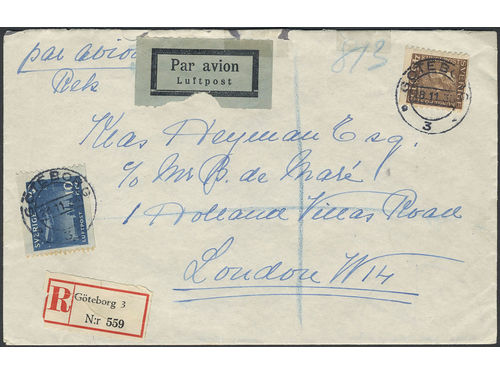 par avion
Rek
Par avion
Luftpost
813
SVERIGE
GÖTEBORG
18.11
3
Klas Heyman Esq.
c/o Mr B. de Maré
1 Holland Villas Road
London W14
GÖTEBORG
SVERIGE
10
LUFTPOST
R
Göteborg 3
N:r 559